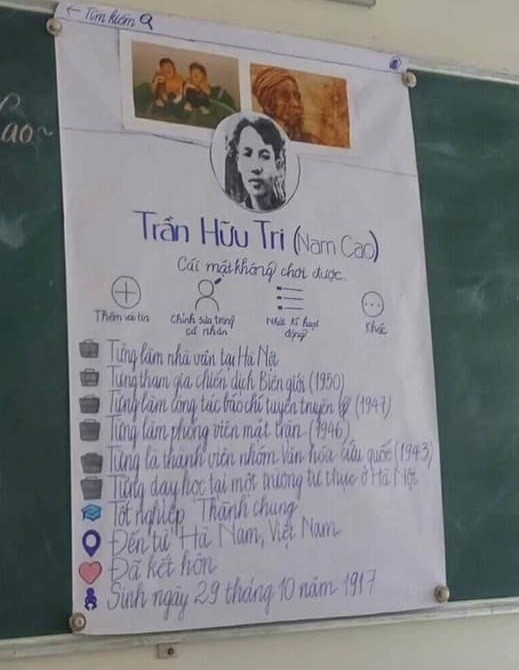 ← Tìm kiếm
ao~
Trần Hữu Tri (Nam Cao)
Cái mặt không chơi được.
Thêm vào tin
chỉnh sửa trang cá nhân
Nhật kí hoạt động
Khác
Từng làm nhà văn tại Hà Nội
Từng tham gia chiến dịch Biên giới (1950)
Từng làm công tác báo chí tuyên truyền (1947)
Từng làm phóng viên mặt trận (1946)
Từng là thành viên nhóm Văn hóa cứu quốc (1943)
Từng dạy học tại một trường tư thục ở Hà Nội
Tốt nghiệp "Thành chung"
Đến từ Hà Nam, Việt Nam
Đã kết hôn
Sinh ngày 29 tháng 10 năm 1917